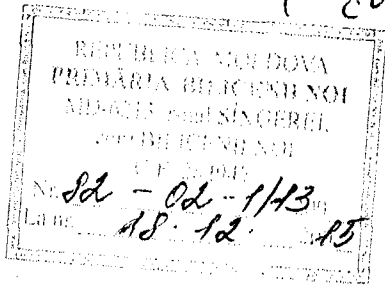 REPUBLICA MOLDOVA
PRIMĂRIA BILICENII NOI
MD-6213 raionul SÎNGEREI,
BILICENII NOI
Nr. 82 - 02 - 1/13
La nr. 18. 12. 15